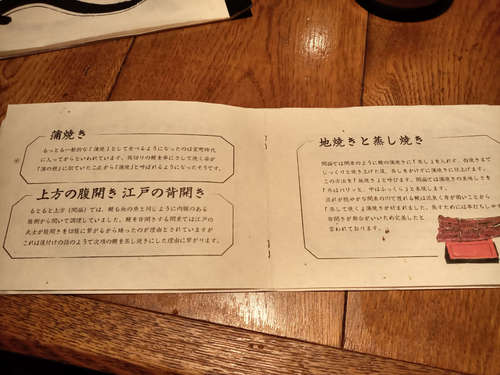 蒲焼き
もっとも一般的な『蒲焼』として食べるようになったのは室町時代
に入ってからといわれています。筒切りの鰻を串にさして焼く姿が
『蒲の穂』に似ていたことから『蒲焼』と呼ばれるようになったそうです。
上方の腹開き 江戸の背開き
もともと上方(関西)では、鰻も他の魚と同じように内臓のある
腹側から開いて調理していました。鰻を背開きする関東では江戸の
武士が腹開きを切腹に繋がるから嫌ったのが理由とされていますが
これは後付けの話のようで次項の鰻を蒸し焼きにした理由に繋がります。
地焼きと蒸し焼き
じっくりと焼き上げた後、蒸しをかけずに蒲焼きに仕上げます。
この方法を『地焼き』と呼びます。関西では蒲焼きの美味しさを
『外はパリッと、中はふっくら』と表現します。
『蒸して焼く』蒲焼きが好まれました。蒸すためには串打ちしやすい
背開きが都合がいいため定着したと
言われております。